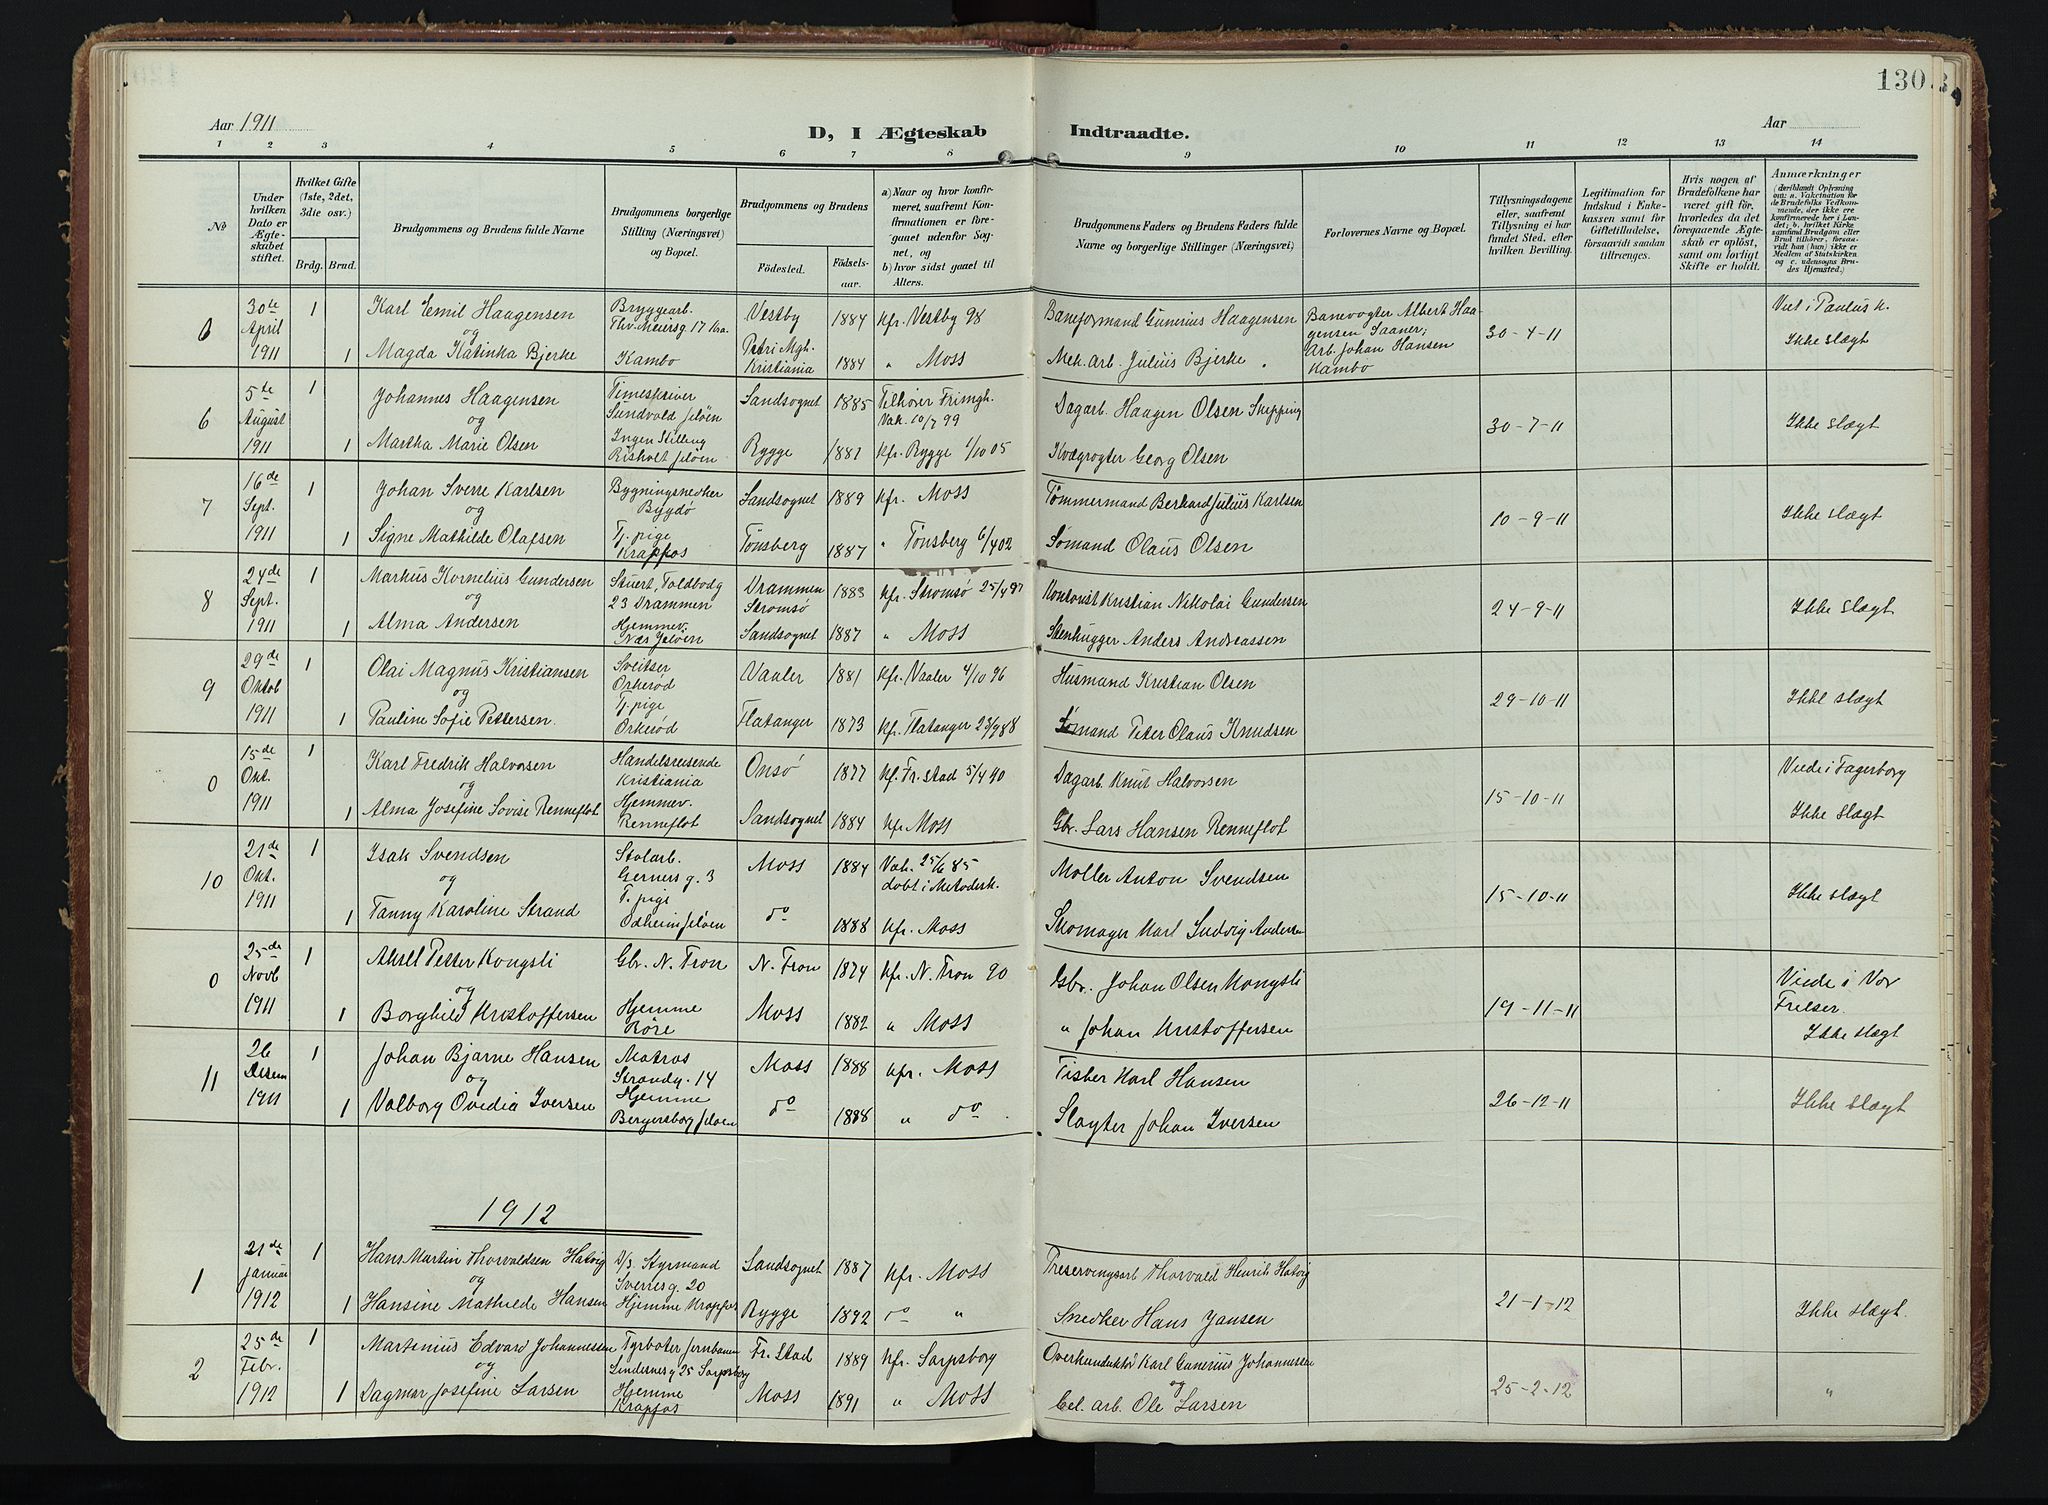 130
Aar 1911
D, I Ægteskab Indtraadte.
Aar
1 2 3 4 5 6 7 8 9 10 11 12 13 14
No
Under hvilken Dato er Ægteskabet stiftet.
Hvilket Gifte (1ste, 2det, 3die osv.)
Brdg. Brud.
Brudgommens og Brudens fulde Navne
Brudgommens borgerlige Stilling (Næringsvei) og Bopæl.
Brudgommens og Brudens
Födested. Födselsaar.
a) Naar og hvor konfirmeret, saafremt Konfirmationen er foregaaet udenfor Sognet, og
b) hvor sidst gaaet til Alters.
Brudgommens Faders og Brudens Faders fulde Navne og borgerlige Stillinger (Næringsvei)
Forlovernes Navne og Bopæl.
Tillysningsdagene eller, saafremt Tillysning ei har fundet Sted, efter hvilken Bevilling.
Legitimation for Indskud i Enkekassen samt for Giftetilladelse, forsaavidt saadan tiltrænges.
Hvis nogen af Brudefolkene har været gift för, hvorledes da det foregaaende Ægteskab er oplöst, samt om lovligt Skifte er holdt.
Anmærkninger
(deriblandt Oplysning om: a. Vaccination for de Brudefolks Vedkommende, der ikke ere konfirmerede her i Landet; b. hvilket Kirkesamfund Brudgom eller Brud tilhörer, forsaavidt han (hun) ikke er Medlem af Statskirken og c. udensogns Brudes Hjemsted.)
0 30te April 1911 1 Karl Emil Haagensen Bryggearb. Thv. Meiersg 17 Kra. Vestby 1884 Kfr. Vestby 98 Baneformand Gunerius Haagensen Banevogter Albert Haagensen Saaner; 30-4-11 Viet i Paulus K.
og
1 Magda Katinka Bjerke Kambo Petri Mgh. Kristiania 1884 " Moss Mek. Arb. Julius Bjerke Arb. Johan Hansen Kambo Ikke slægt
6 5te August 1911 1 Johannes Haagensen Sundvold Jeløen Sandsognet 1885 Tilhører Frimgh. Vak. 10/7 99 Dagarb. Haagen Olsen Skipping 30-7-11 Ikke slægt
og
1 Martha Marie Olsen Ingen Stilling Risholt Jeløen Rygge 1881 Kfr. Rygge 1/10 05 Kvægrøgter Georg Olsen
7 16de Sept. 1911 1 Johan Sverre Karlsen Bygningsnedker Bygdø Sandsognet 1889 Kfr. Moss Tømmermand Berhard Julius Karlsen 10-9-11 Ikke slægt
og
1 Signe Mathilde Olafsen Tj. pige Krapfos Tønsberg 1887 " Tønsberg 6/4 02 Sømand Olaus Olsen
8 24de Sept. 1911 1 Markus Kornelius Gundersen Stuert, Toldbodg 23 Drammen Drammen Strømsø 1883 Kfr. Strømsø 25/4 97 Kontorist Kristian Nikolai Gundersen 24-9-11 Ikke slægt
og
1 Alma Andersen Hjemmev. Nær Jeløen Sandsognet 1887 " Moss Stenhugger Anders Andreassen
9 29de Oktob 1911 1 Olai Magnus Kristiansen Sveitser Orkerød Vaaler 1881 Kfr. Vaaler 4/10 96 Husmand Kristian Olsen 29-10-11 Ikke slægt
og
1 Pauline Sofie Pettersen. Tj. pige Orkerød Flatanger 1873 Kfr. Flatanger 23/9 88 Sømand Peter Olaus Knudsen
0 15de Okt. 1911 1 Karl Fredrik Halvorsen Handelsreisende Kristiania Onsø 1877 Kf. Fr.stad 5/4 90 Dagarb. Knut Halvorsen 15-10-11 Viede i Fagerborg
og
1 Alma Josefine Lovise Renneflot Hjemmev. Renneflot Sandsognet 1884 Kfr Moss Gbr. Lars Hansen Renneflot Ikke slægt
10 21de Okt. 1911 1 Isak Svendsen Stolarb. Gernersg. 3 Moss 1884 Vak. 25/6 85 døbt i Metodistk. Møller Anton Svendsen 15-10-11 Ikke slægt
og
1 Fanny Karoline Strand T. pige Odheim Jeløen do 1888 Kfr. Moss Skomager Karl Ludvig Andersen
0 25de Novb 1911 1 Aksel Petter Kongsli Gbr. N. Fron N. Fron 1874 Kfr. N. Fron 90 Gbr. Johan Olsen Kongsli 19-11-11 Viede i Vor Frelser.
og
1 Borghild Kristoffersen Hjemme Røre Moss 1882 " Moss " Johan Kristoffersen Ikke slægt
11 26 Desem 1911 1 Johan Bjarne Hansen Matros Strandg. 14 Moss 1888 Kfr. Moss Fisker Karl Hansen 26-12-11 Ikke slægt
og
1 Valborg Ovidia Iversen Hjemme Bergersborg Jeløen do 1888 " do Slagter Johan Iversen
1912
1 21de Januar 1912 1 Hans Martin Thorvaldsen Hatvig D/S. Styrmand Sverresg. 20 Sandsognet 1887 Kfr. Moss Preservingsarb Thorvald Henrik Hatvig 21-1-12 Ikke slægt
og
1 Hansine Mathilde Hansen Hjemme Krapfos Rygge 1892 do " Snedker Hans Jansen
2 25de Febr. 1912 1 Martinius Edvard Johannessen Fyrbøter Jernbanen Lindernesg 25 Sarpsborg Fr. Stad 1889 Kfr. Sarpsborg Overkonduktør Karl Gunerius Johannessen 25-2-12 "
og og
1 Dagmar Josefine Larsen Hjemme Krapfos Moss 1891 " Moss Cel. arb. Ole Larsen